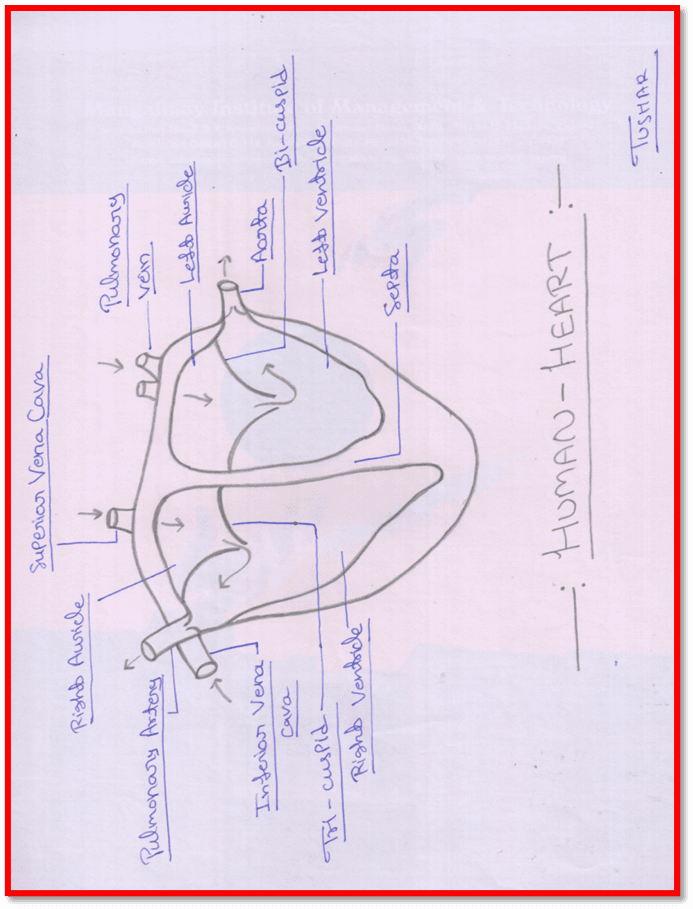 Mangalmay Institute of Management & Technology
Superior Vena Cava
Right Auricle
Pulmonary
vein
Pulmonary Artery
Left Auricle
Aorta
Inferior Vena
Cava
Bi-cuspid
Left Ventricle
Tri-cuspid
Right Ventricle
Septa
-: HUMAN-HEART :-
TUSHAR